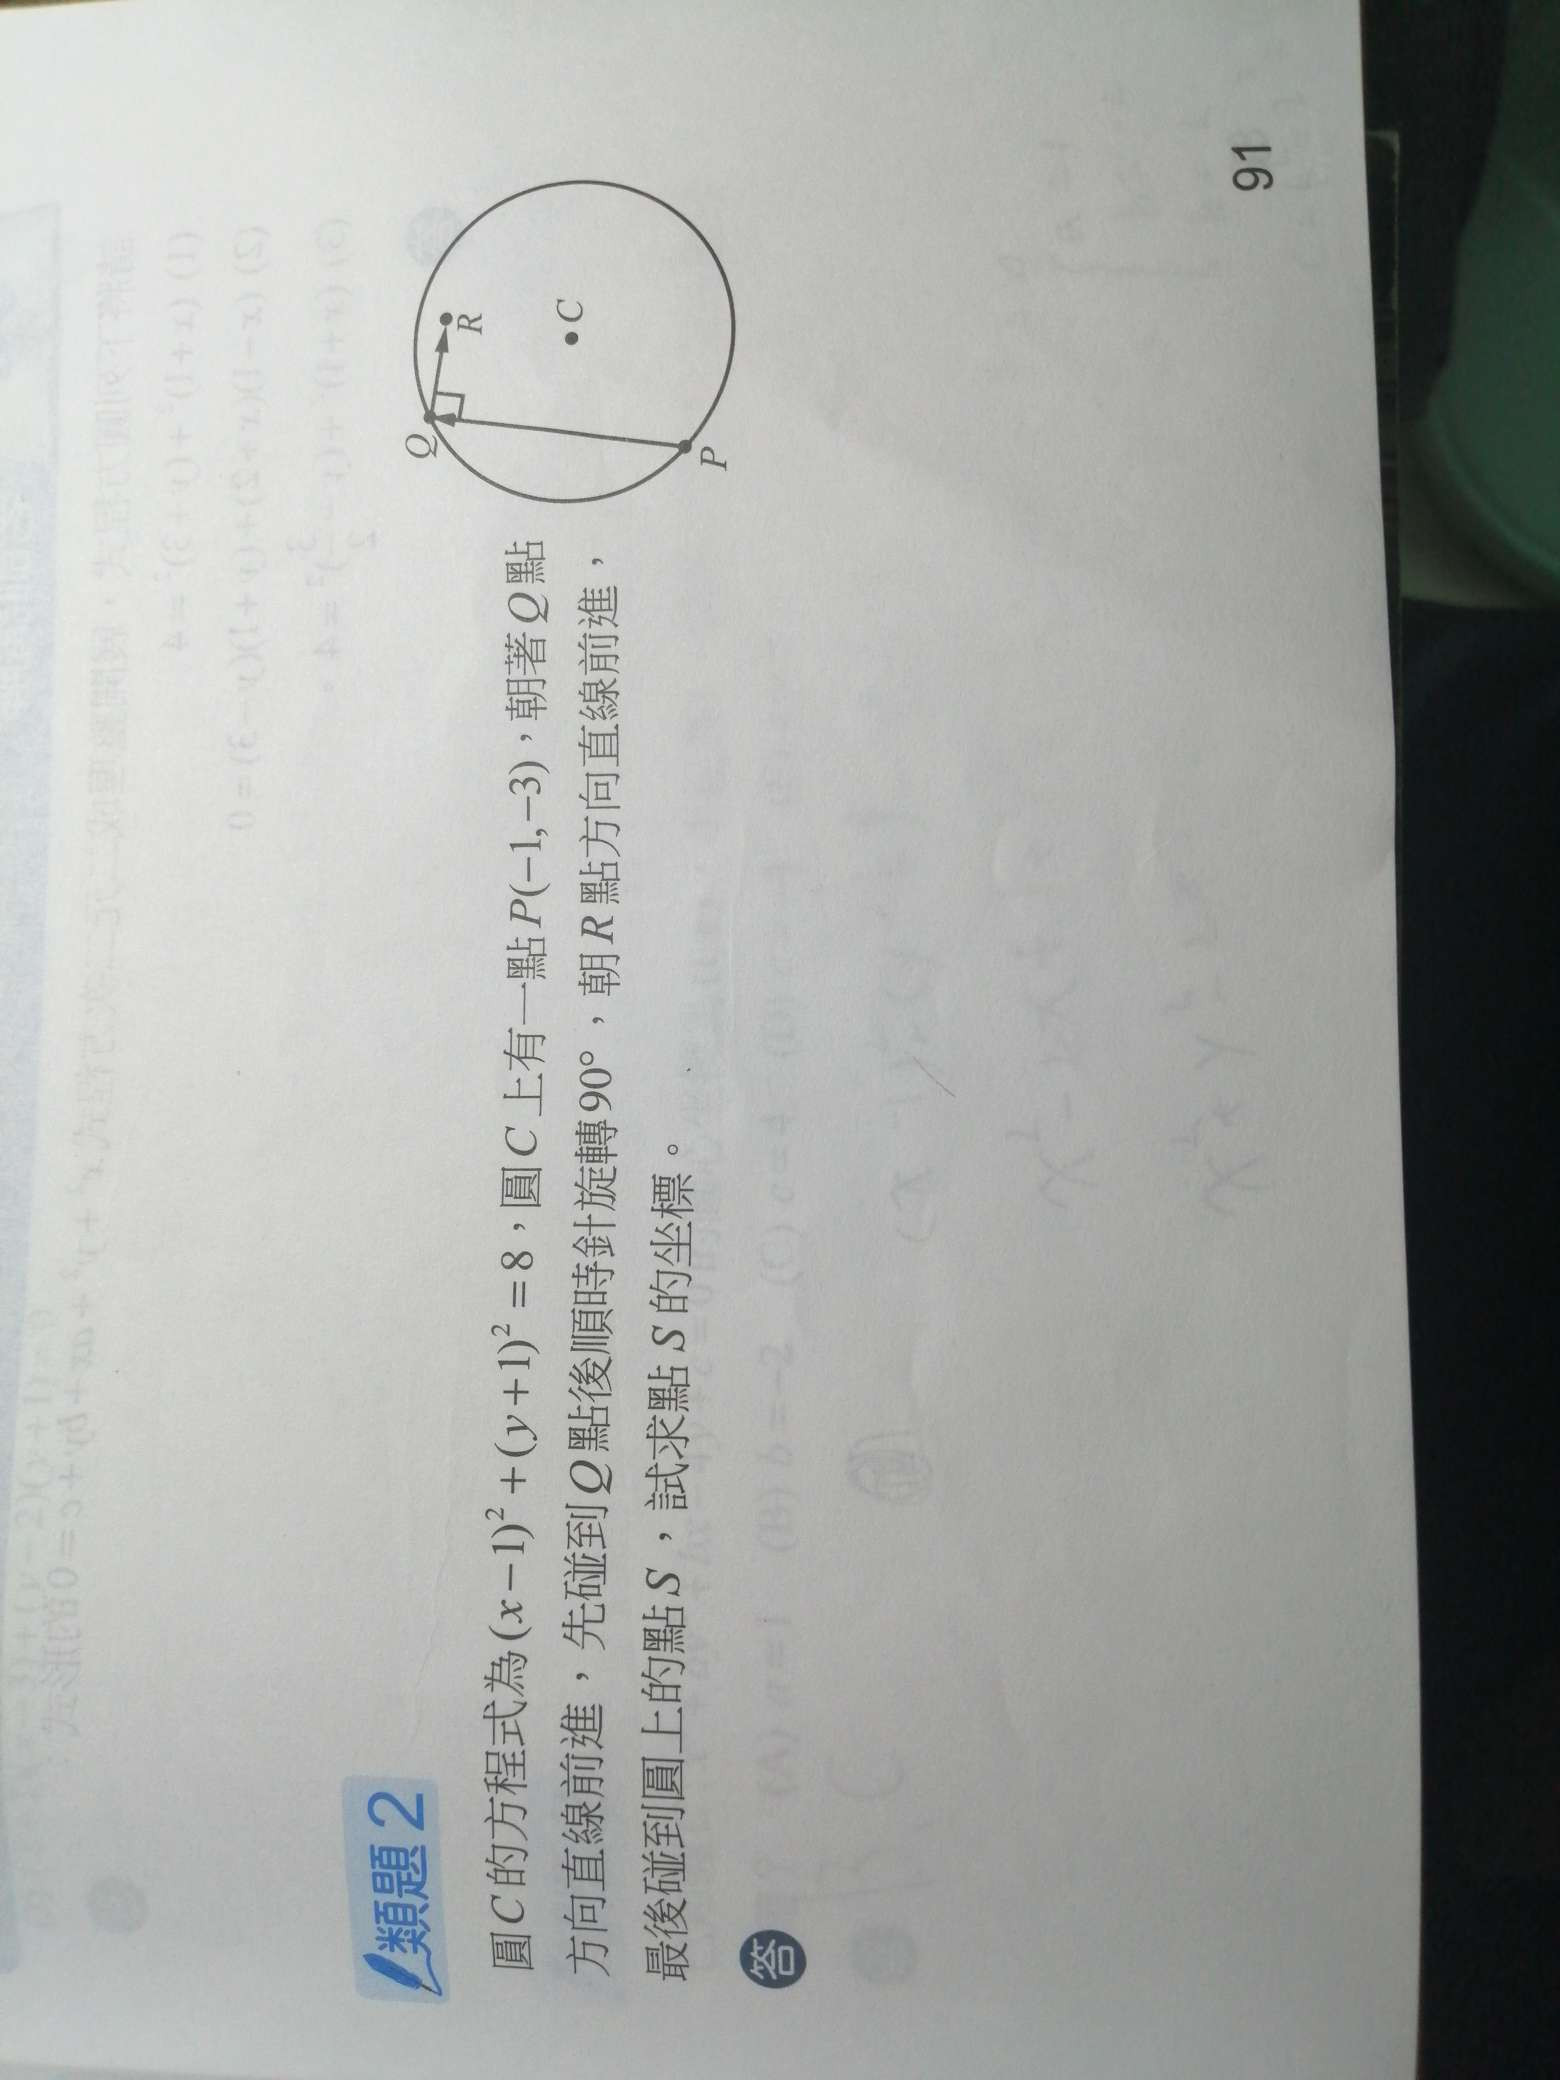 類題2
圓C的方程式為(x−1)²+(y+1)²=8，圓C上有一點P(−1,−3)，朝著Q點
方向直線前進，先碰到Q點後順時針旋轉90°，朝R點方向直線前進，
最後碰到圓上的點S，試求點S的坐標。
Q
R
C
P
答
91